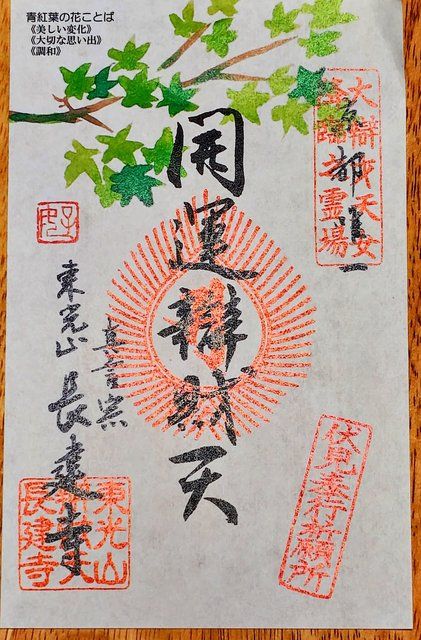 青紅葉の花ことば
《美しい変化》
《大切な思い出》
《調和》
大辯財天女
霊場
京都
開運辯財天
真言宗
東光山
長建寺
伏見奉行祈願所
東光山
辯財天
長建寺